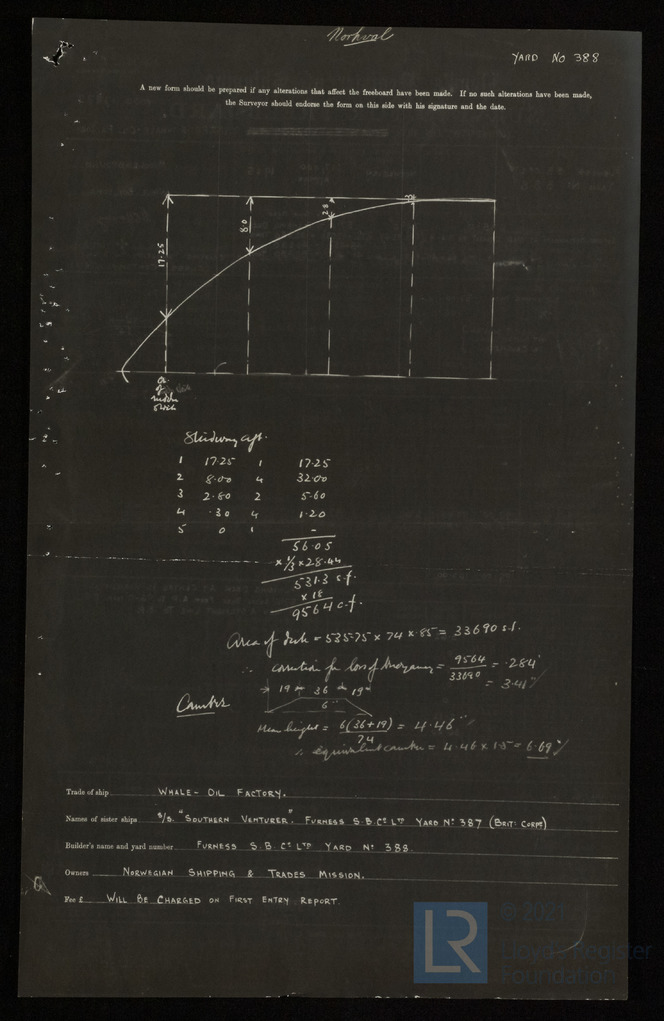 Norhval
YARD No 388
A new form should be prepared if any alterations that affect the freeboard have been made. If no such alterations have been made,
the Surveyor should endorse the form on this side with his signature and the date.
17.25
8.0
2.8
.3
of
Slipway apt.
1 17.25 1 17.25
2 8.00 4 32.00
3 2.80 2 5.60
4 .30 4 1.20
5 0 1 -
56.05
x 1/3 x 28.44
531.3 s.f.
x 18
9564 c.f.
Area of deck = 535.75 x 74 x .85 = 33690 s.f.
∴ correction for loss of buoyancy = 9564/33690 = .284'
= 3.41"
19 36 19
6"
Camber
Mean height = 6(36+19)/74 = 4.46"
∴ equivalent camber = 4.46 x 1.5 = 6.69"
Trade of ship WHALE-OIL FACTORY.
Names of sister ships S/S. "SOUTHERN VENTURER". FURNESS S.B. Co LTD YARD No: 387 (BRIT: CORPn)
Builder's name and yard number FURNESS S.B. Co LTD YARD No 388.
Owners NORWEGIAN SHIPPING & TRADES MISSION.
Fee £ WILL BE CHARGED ON FIRST ENTRY REPORT.
LR
© 2021
Lloyd's Register
Foundation